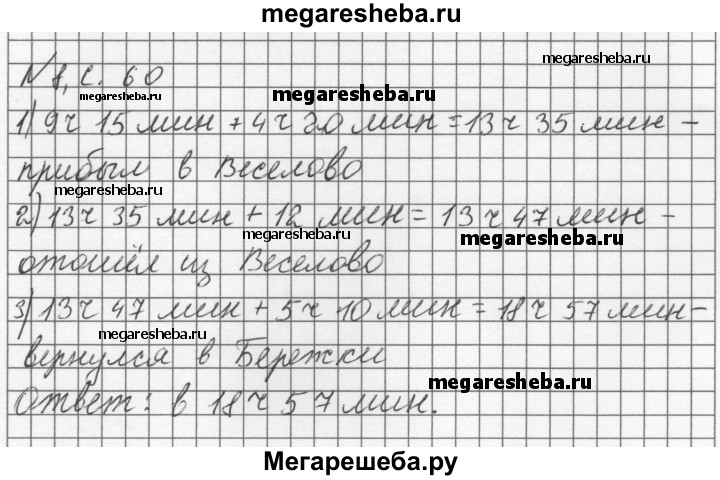 megaresheba.ru
megaresheba.ru
№ 1, с. 60
megaresheba.ru
megaresheba.ru
1) 9 ч 15 мин + 4 ч 20 мин = 13 ч 35 мин –
прибыл в Веселово
megaresheba.ru
2) 13 ч 35 мин + 12 мин = 13 ч 47 мин –
megaresheba.ru
megaresheba.ru
отошёл из Веселово
3) 13 ч 47 мин + 5 ч 10 мин = 18 ч 57 мин –
megaresheba.ru
вернулся в Бережки
megaresheba.ru
Ответ: в 18 ч 57 мин.
Мегарешеба.ру